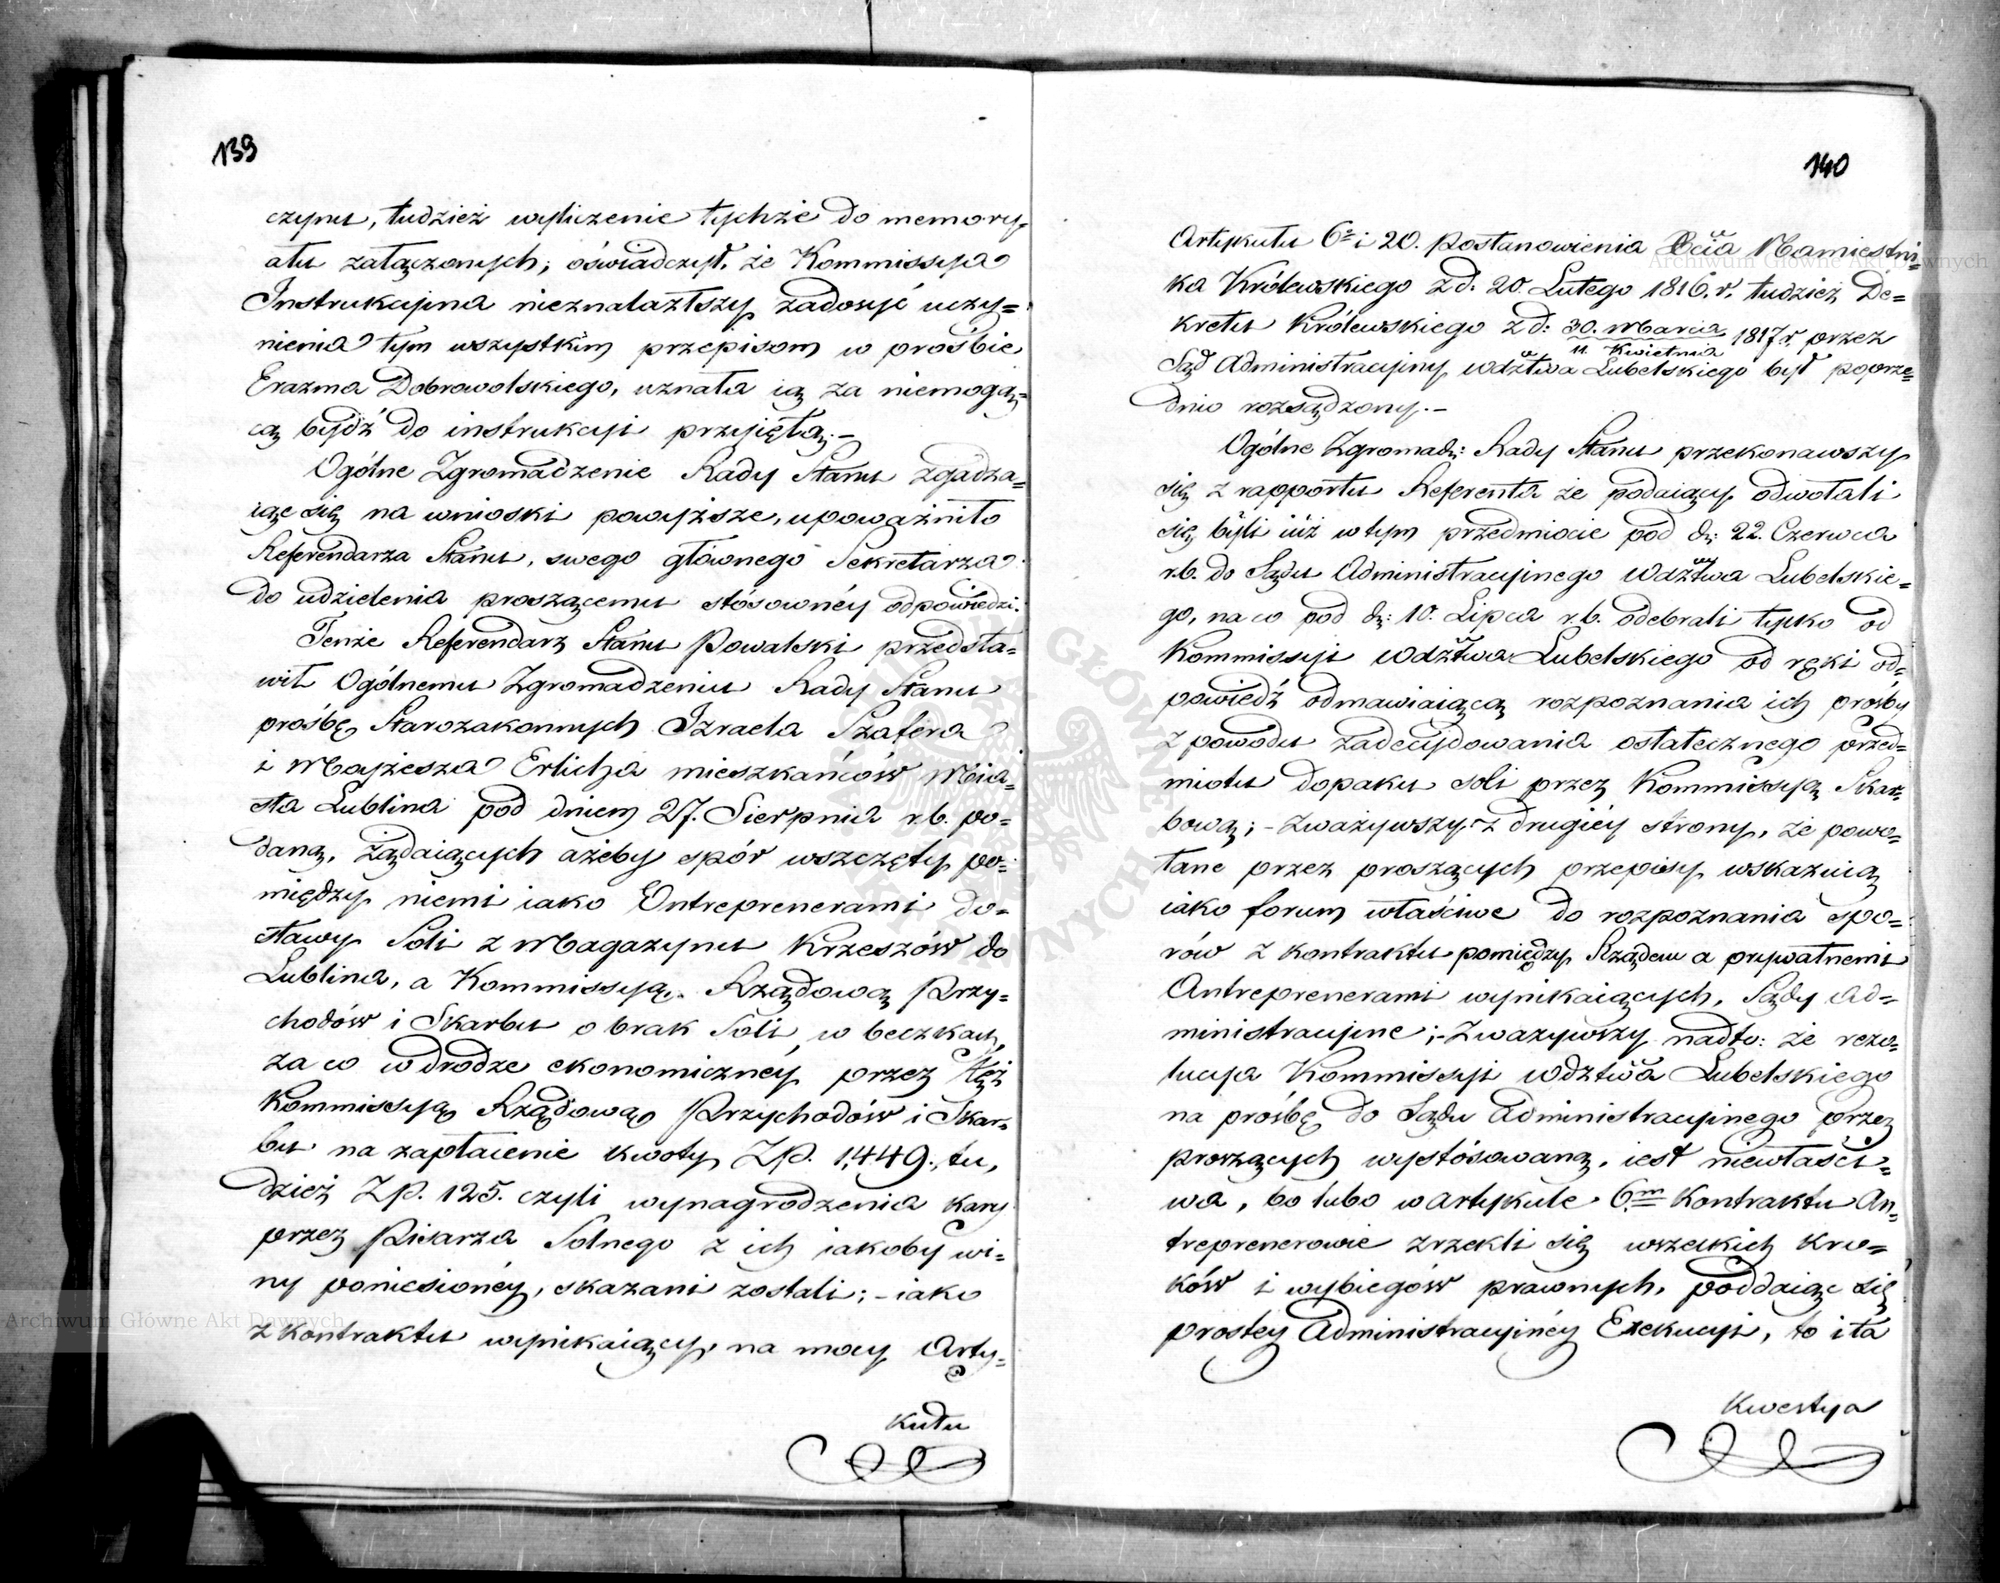 139
czynu, tudzież wyliczenie tychże do memory-
ału załączonych; oświadczył, że Kommissya
Instrukcyjna nieznalazłszy zadosyć uczy=
nienia tym wszystkim przepisom w prośbie
Erazma Dobrowolskiego, uznała ią za niemogą=
cą bydź do instrukcyi przyiętą.-
Ogólne Zgromadzenie Rady Stanu zgadza=
iąc się na wnioski powyższe, upoważniło
Referendarza Stanu, swego głównego Sekretarza
do udzielenia proszącemu stósownéy odpowiedzi.
Tenże Referendarz Stanu Powalski przedsta=
wił Ogólnemu Zgromadzeniu Rady Stanu
prośbę Starozakonnych Izraela Szafera
i Moyżesza Erlicha mieszkańców Mia=
sta Lublina pod dniem 27. Sierpnia r.b. po=
daną, żądaiących ażeby spór wszczęty po=
między niemi iako Entreprenerami do=
stawy Soli z Magazynu Krzeszów do
Lublina, a Kommissyą Rządową Przy=
chodów i Skarbu o brak Soli w beczkach,
za co w drodze ekonomicznéy przez tęż
Kommissyą Rządową Przychodów i Skar=
bu na zapłacenie kwoty Złp. 1,449., tu,
dzież Złp. 125. czyli wynagrodzenia kary
przez Pisarza Solnego z ich iakoby wi=
ny poniesionéy, skazani zostali; - iako
z kontraktu wynikaiący, na mocy Arty=
kułu
140
Artykułu 6º i 20. postanowienia Xcia Namiestni=
ka Królewskiego z d: 20. Lutego 1816. r. tudzież De=
kretu Królewskiego z d: 30. Marca / 11 Kwietnia 1817 r. przez
Sąd Administracyiny Wdztwa Lubelskiego był poprze=
dnio rozsądzony.-
Ogólne Zgromadz: Rady Stanu przekonawszy
się z rapportu Referenta że podaiący odwołali
się byli iuż w tym przedmiocie pod d: 22. Czerwca
r.b. do Sądu Administracyinego Wdztwa Lubelskie=
go, na co pod d: 10. Lipca r.b. odebrali tylko od
Kommissyi Wdztwa Lubelskiego od ręki od=
powiedź odmawiaiącą rozpoznania ich prośby
z powodu zadecydowania ostatecznego przed=
miotu dopaku soli przez Kommissyą Skar=
bową; - zważywszy z drugiéy strony, że powo=
łane przez proszących przepisy wskazuią
iako forum właściwe do rozpoznania spo=
rów z kontraktu pomiędzy Rządem a prywatnemi
Antreprenerami wynikaiących, Sądy Ad=
ministracyine; - Zważywszy nadto: że rezo=
lucya Kommissyi Wdztwa Lubelskiego
na prośbę do Sądu Administracyinego przez
proszących wystósowaną, iest niewłaści=
wa, bo lubo w Artykule 6.m Kontraktu An=
treprenerowie zrzekli się wszelkich kro=
ków i wybiegów prawnych, poddaiąc się
prostey Administracyinéy Exekucyi, to i ta
Kwestya
Archiwum Główne Akt Dawnych
Archiwum Główne Akt Dawnych